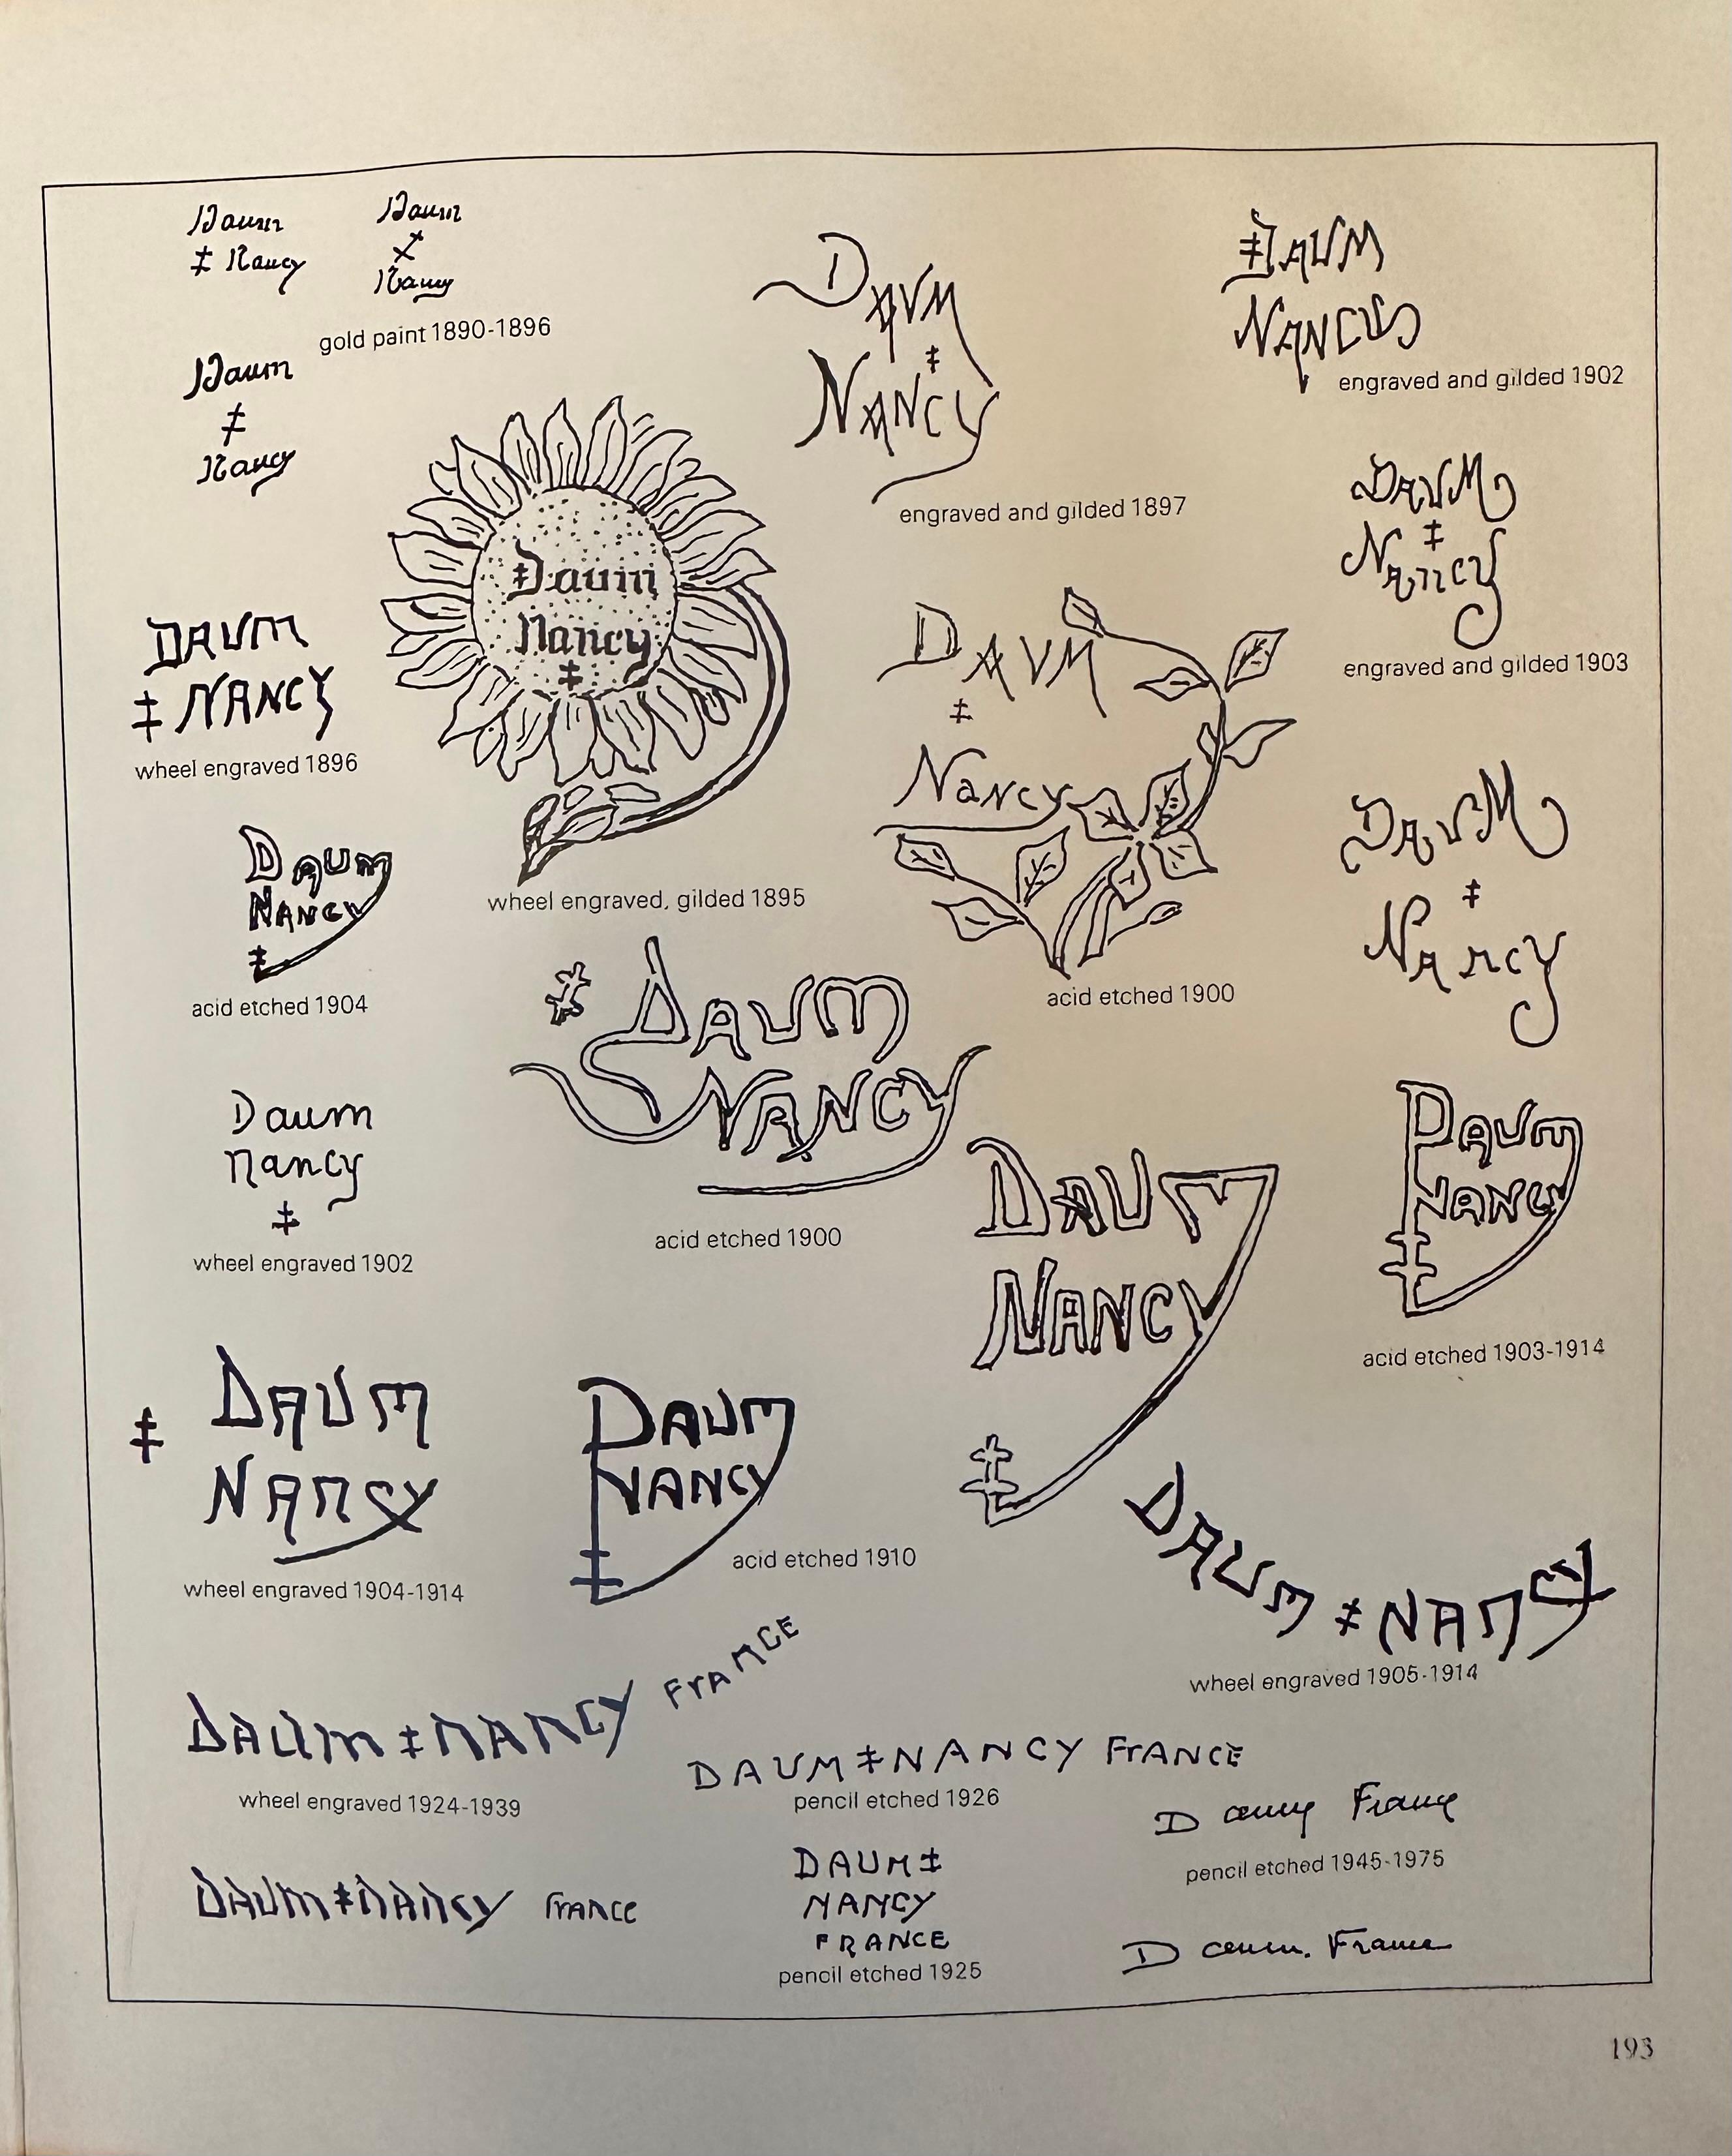 Daum
‡ Nancy
Daum
‡
Nancy
gold paint 1890-1896
Daum
‡
Nancy
DAUM
‡
NANCY
engraved and gilded 1897
DAUM
NANCY
engraved and gilded 1902
Daum
Nancy
‡
wheel engraved, gilded 1895
DAUM
‡
Nancy
engraved and gilded 1903
DAUM
‡ NANCY
wheel engraved 1896
DAVM
‡
Nancy
acid etched 1900
DAUM
NANCY
‡
acid etched 1904
DAUM
‡
Nancy
‡ DAUM
NANCY
acid etched 1900
Daum
nancy
‡
wheel engraved 1902
DAUM
NANCY
‡
DAUM
NANCY
‡
acid etched 1903-1914
‡ DAUM
NANCY
wheel engraved 1904-1914
DAUM
NANCY
‡
acid etched 1910
DAUM ‡ NANCY
wheel engraved 1905-1914
DAUM ‡ NANCY FRANCE
wheel engraved 1924-1939
DAUM ‡ NANCY FRANCE
pencil etched 1926
Daum France
pencil etched 1945-1975
DAUM ‡ NANCY FRANCE
DAUM ‡
NANCY
FRANCE
pencil etched 1925
Daum. France
193